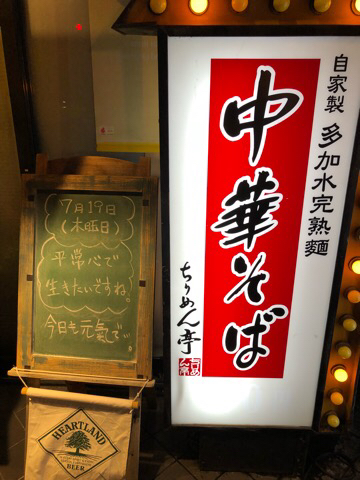 7月19日
(木曜日)
平常心で
生きたいですね。
今日も元氣でい。
HEARTLAND
BEER
自家製 多加水完熟麺
中華そば
ちりめん亭